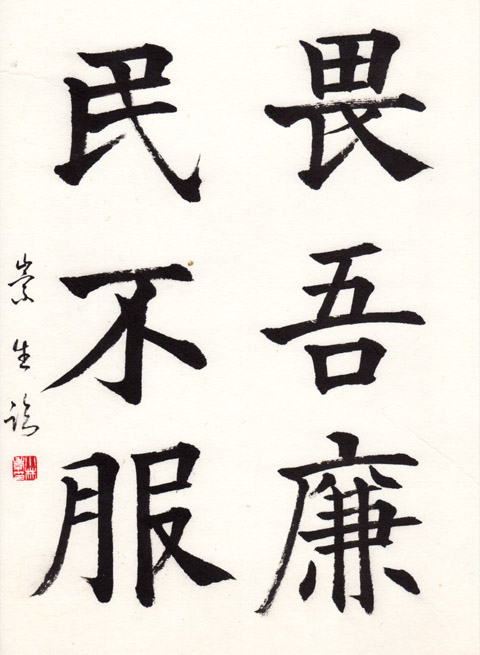 畏吾廉
民不服
崇生